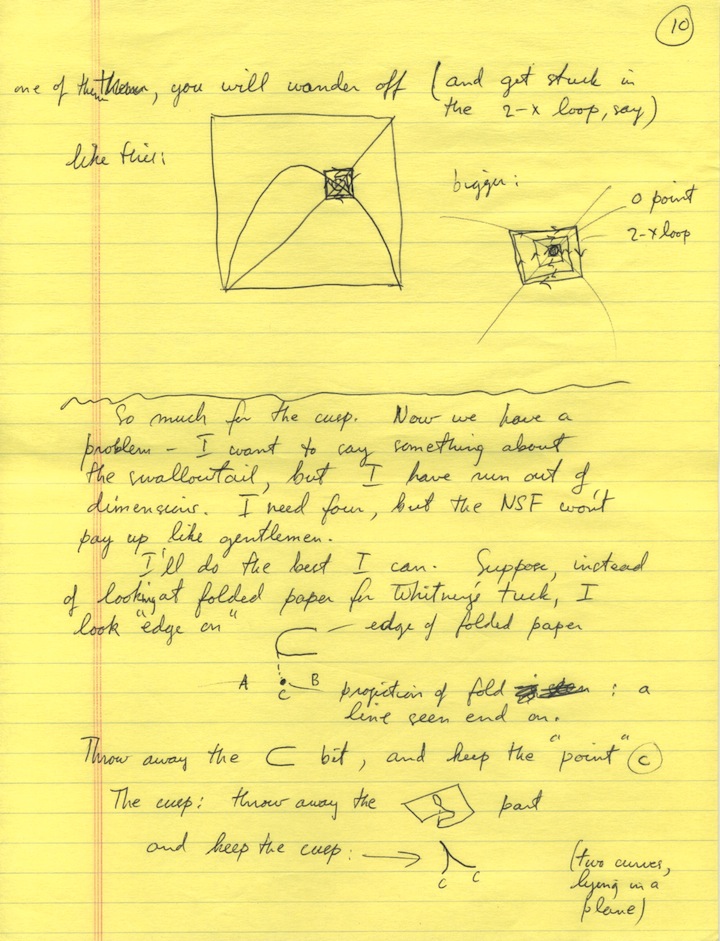 10
one of them, you will wander off (and get stuck in
the 2-x loop, say)
like this:
bigger:
0 point
2-x loop
So much for the cusp. Now we have a
problem - I want to say something about
the swallowtail, but I have run out of
dimensions. I need four, but the NSF won't
pay up like gentlemen.
I'll do the best I can. Suppose, instead
of looking at folded paper for Whitney's tuck, I
look "edge on"
edge of folded paper
A C B
projection of fold : a
line seen end on.
Throw away the ⊂ bit, and keep the "point" C
The cusp: throw away the part
and keep the cusp: →
C C
(two curves,
lying in a
plane)